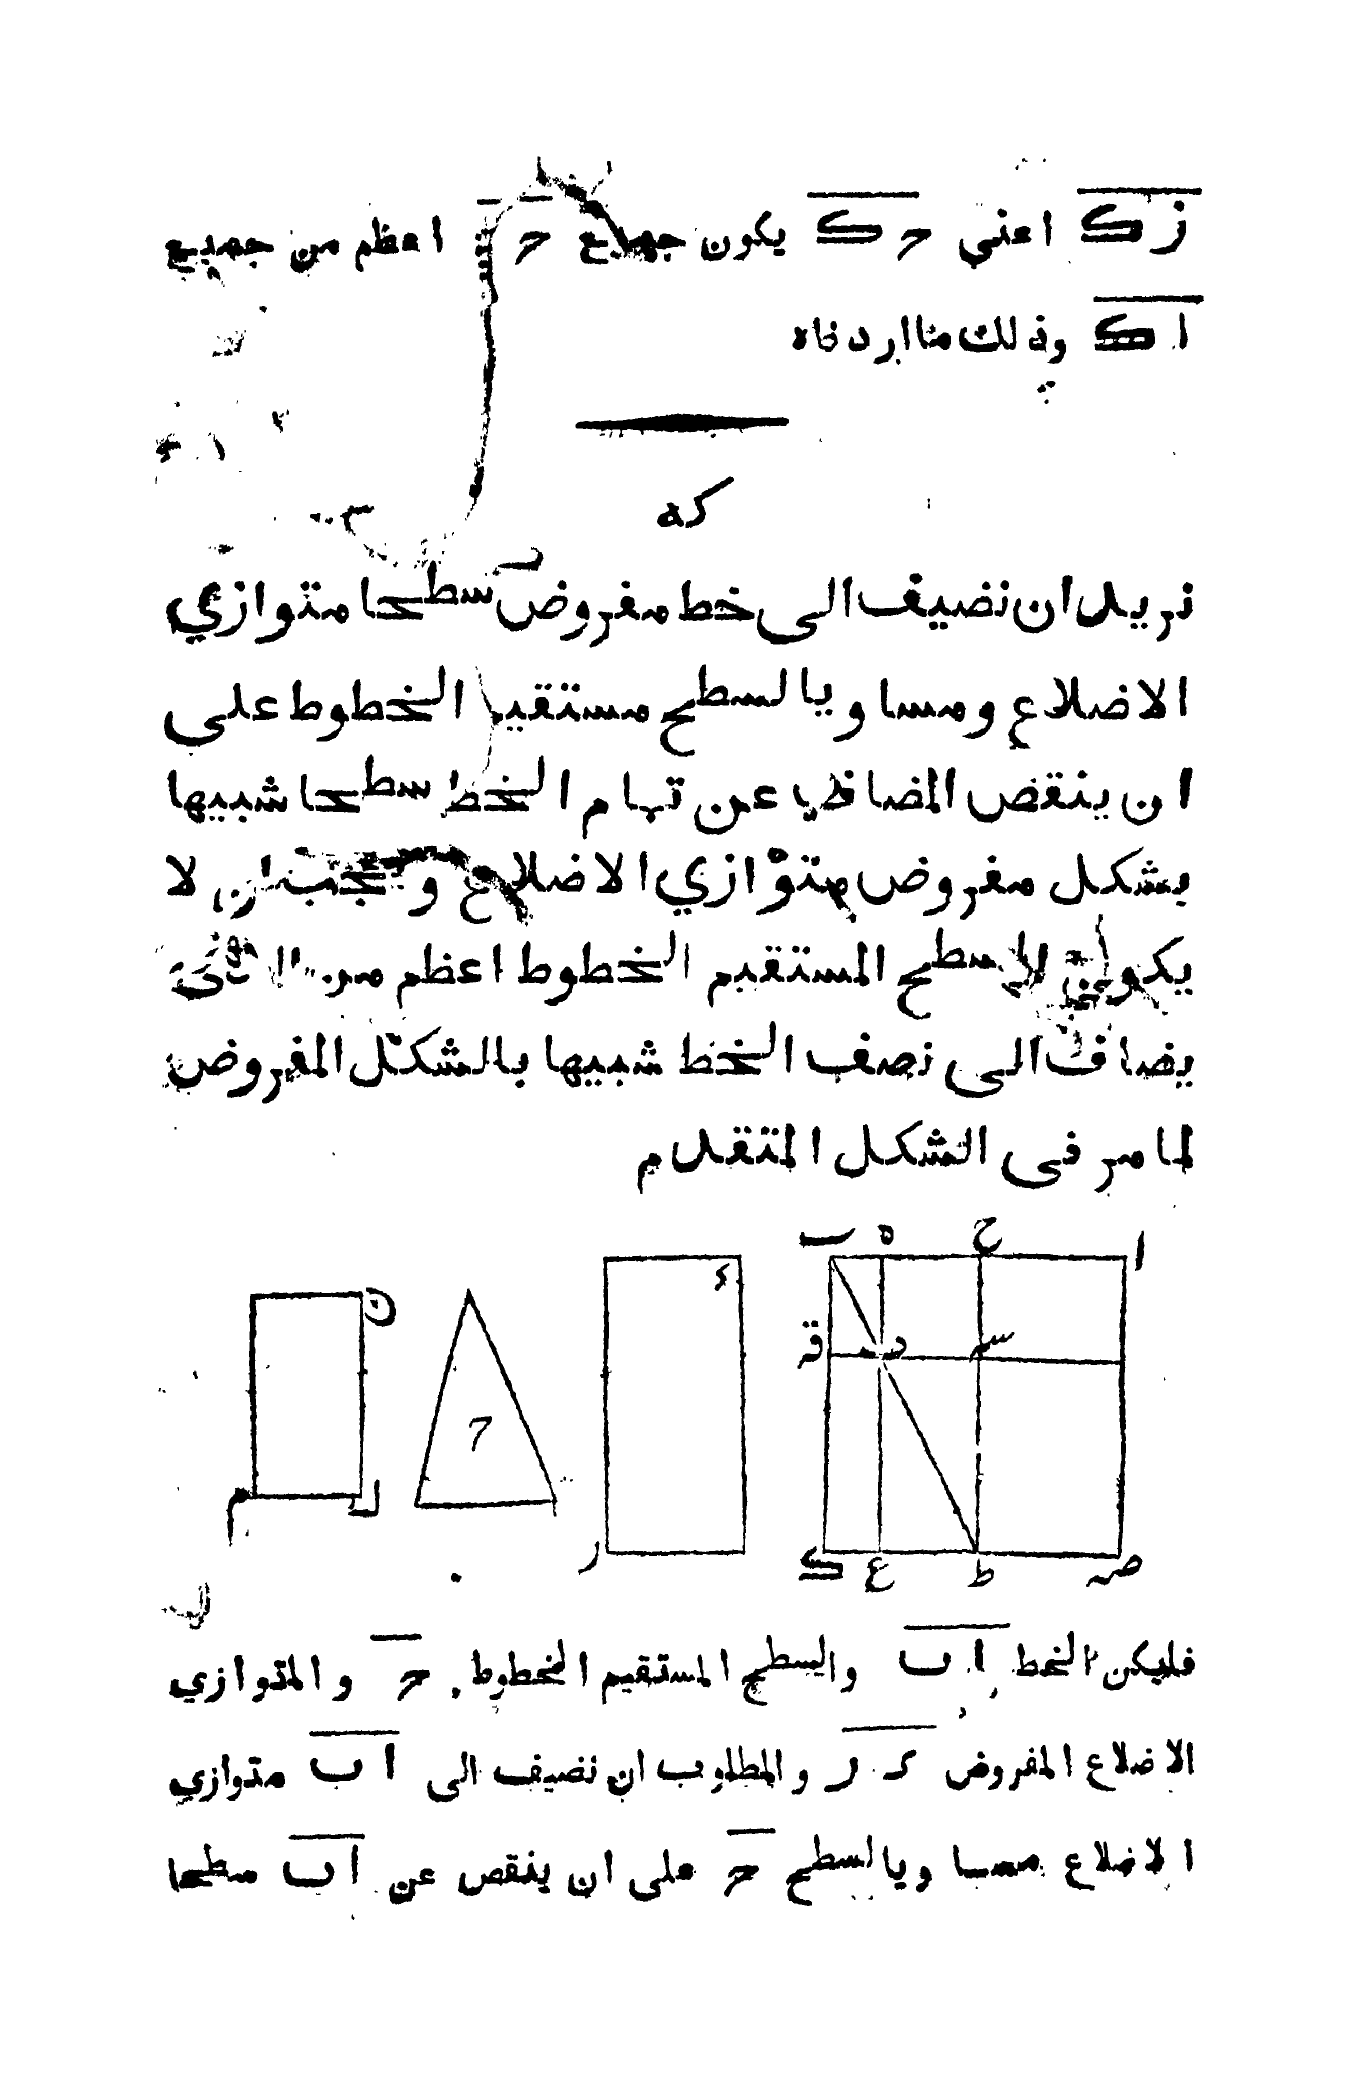 زك اعني حك يكون جميع ح اعظم من جميع
اك وذلك ما اردناه
كه
نريد ان نضيف الى خط مفروض سطحا متوازي
الاضلاع ومساويا لسطح مستقيم الخطوط على
ان ينقص المضاف عن تمام الخط سطحا شبيها
بشكل مفروض متوازي الاضلاع ويجب ان لا
يكون السطح المستقيم الخطوط اعظم من الذي
يضاف الى نصف الخط شبيها بالشكل المفروض
لما مر في الشكل المتقدم
ب ه ح ا
ن ء
ق ف س
ح
م ل
ر ك ع ط ص
فليكن الخط اب والسطح المستقيم الخطوط ح والمتوازي
الاضلاع المفروض ء ر والمطلوب ان نضيف الى اب متوازي
الاضلاع مساويا لسطح ح على ان ينقص عن اب سطحا